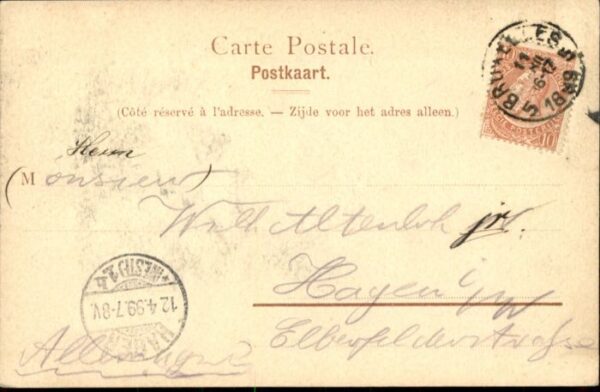 Carte Postale.
Postkaart.
(Côté réservé à l'adresse. — Zijde voor het adres alleen.)
Herrn
(Monsieur
Wilh Altenloh jr.
Hagen i/W
Elberfelderstrasse
Allemagne
BRUXELLES 5
1899
(WESTF) 1 h
12.4.99.7-8V.
HAGEN
10